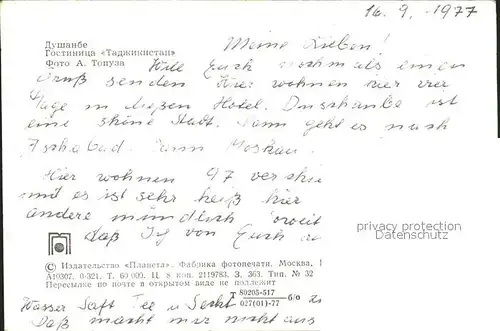 16. 9. 1977
Душанбе
Гостиница «Таджикистан»
Фото А. Топуза
Meine Lieben!
Will Euch nochmals einen
Gruß senden Wir wohnen hier vier
Tage in diesen Hotel. Duschanbe ist
eine schöne Stadt. Dann geht es nach
Aschabad. Dann Moskau.
Hier wohnen 97 verschie
und es ist sehr heiß hier
andere mündlich soweit
daß Ich von Euch
privacy protection
Datenschutz
© Издательство «Планета». Фабрика фотопечати. Москва, 1
А10307. 0-321. Т. 60 000. Ц. 8 коп. 2119783. З. 363. Тип. № 32
Пересылке по почте в открытом виде не подлежит
Т 80205-517
027(01)-77 б/о
Wasser Saft Tee u Sekt
Daß macht mir nicht aus